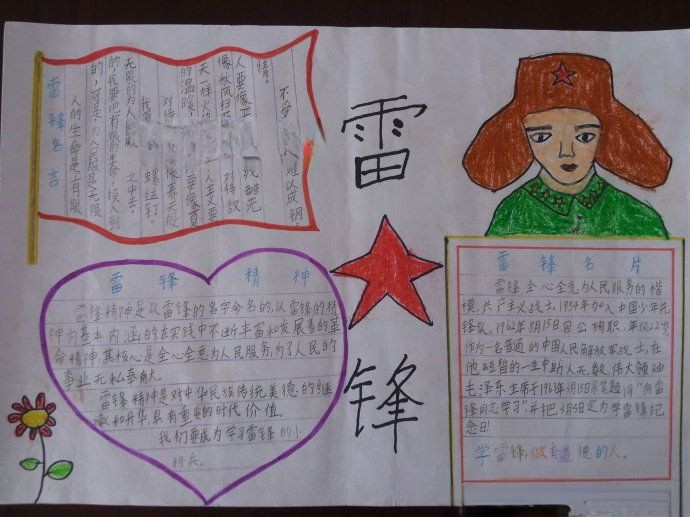 雷锋名言
人的生命是上有限
的,可是,为人民服务是无限
的,我要把有限的生命,投入到
无限的为人
之中去。
我
螺丝钉。
对待
像春天般
的温暖
要像夏
天一样火
主义要
像秋风扫
对待敌
人要像严
残酷无
情。
不受
难以成钢。
雷
锋
雷锋精神
雷锋精神是以雷锋的名字命名的,以雷锋的精
神为基本内涵的在实践中不断丰富和发展着的革
命精神,其核心是全心全意为人民服务,为了人民的
事业无私奉献。
雷锋精神是对中华民族传统美德的继
承和升华,具有重要的时代价值。
我们要成为学习雷锋的小
标兵。
雷锋名片
雷锋,全心全意为人民服务的楷
模,共产主义战士,1954年加入中国少年先
锋队,1962年8月15日因公殉职,年仅22岁,
作为一名普通的中国人民解放军战士,在
他短暂的一生中助人无数,伟大领袖
毛泽东主席于1963年3月5日亲笔题词“向雷
锋同志学习”,并把3月5日定为学雷锋纪
念日!
学雷锋,做有道德的人。